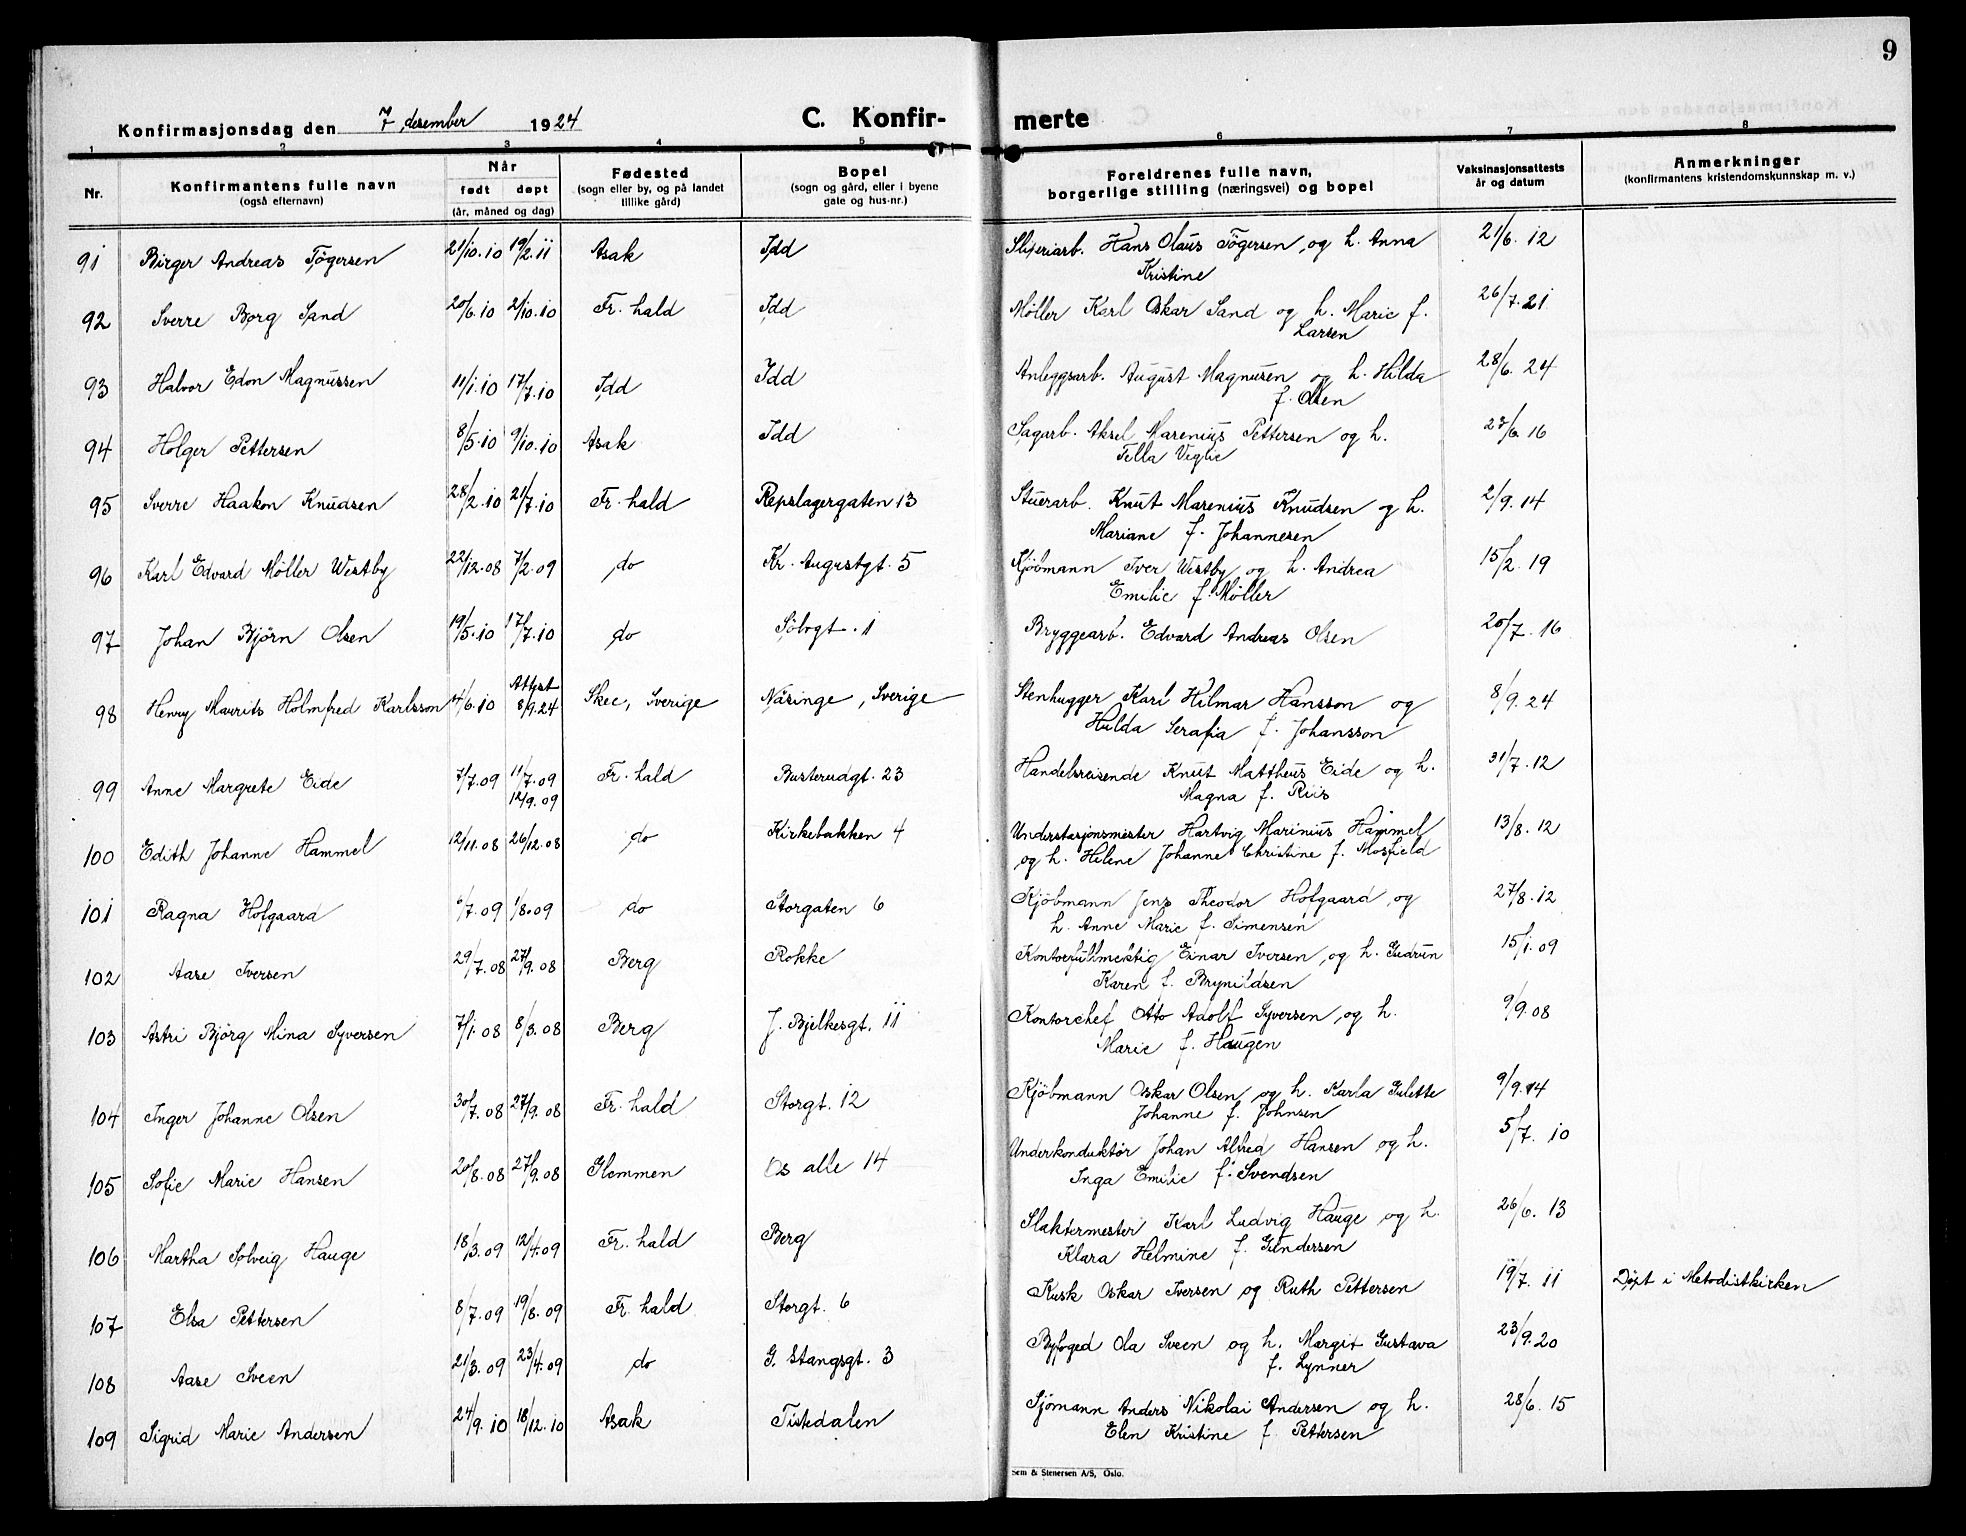 9
Konfirmasjonsdag den 7 desember 1924
C. Konfir-
merte
1 2 3 4 5 6 7 8
Nr.
Konfirmantens fulle navn
(også efternavn)
Når
født døpt
(år, måned og dag)
Fødested
(sogn eller by, og på landet
tillike gård)
Bopel
(sogn og gård, eller i byene
gate og hus-nr.)
Foreldrenes fulle navn,
borgerlige stilling (næringsvei) og bopel
Vaksinasjonsattests
år og datum
Anmerkninger
(konfirmantens kristendomskunnskap m. v.)
91 Birger Andreas Tøgersen 21/10.10 19/2.11 Asak Idd Sliperiarb. Hans Olaus Tøgersen, og h. Anna 21/6. 12
Kristine
92 Sverre Borg Sand 20/6.10 2/10.10 Fr. hald Idd Møller Karl Oskar Sand og h. Marie f. 26/7.21
Larsen
93 Halvor Edon Magnussen 11/1.10 17/7.10 Idd Idd Anleggsarb. August Magnusen og h. Hilda 28/6. 24
f. Olsen
94 Holger Pettersen 8/5.10 9/10.10 Asak Idd Sagarb. Aksel Marenius Pettersen og h. 27/6. 16
Tella Veglie
95 Sverre Haakon Knudsen 28/2.10 21/7.10 Fr. hald Repslagergaten 13 Stuerarb. Knut Marenius Knudsen og h. 2/9. 14
Mariane f. Johannesen
96 Karl Edvard Møller Westby 22/12.08 7/2.09 do Kr. Augustgt. 5 Kjøbmann Iver Westby og h. Andrea 15/2. 19
Emilie f. Møller
97 Johan Bjørn Olsen 19/5.10 17/7.10 do Sölvgt. 1 Bryggearb. Edvard Andreas Olsen 20/7. 16
98 Henry Maurits Holmfred Karlsson 4/6.10 Attest 8/9.24 Skee, Sverige Näsinge, Sverige Stenhugger Karl Hilmar Hansson og 8/9. 24
Hulda Serafia f. Johansson
99 Anne Margrete Eide 7/7.09 11/7.09 12/9.09 Fr. hald Busterudgt. 23 Handelsreisende Knut Mattheus Eide og h. 31/7.12
Magna f. Riis
100 Edith Johanne Hammel 12/11.08 26/12.08 do Kirkebakken 4 Understasjonsmester Hartvig Marinius Hammel 13/8. 12
og h. Helene Johanne Christine f. Mosfield
101 Ragna Hofgaard 6/7.09 1/8.09 do Storgaten 6 Kjøbmann Jens Theodor Hofgaard, og 27/8.12
h. Anne Marie f. Simensen
102 Aase Iversen 29/7.08 27/9.08 Berg Rokke Kontorfullmektig Einar Iversen, og h. Gudrun 15/1.09
Karen f. Brynildsen
103 Astri Bjørg Mina Syversen 7/1.08 8/3.08 Berg J. Bjelkesgt. 11 Kontorchef Otto Adolf Syversen, og h. 9/9.08
Marie f. Haugen
104 Inger Johanne Olsen 30/7.08 27/9.08 Fr. hald Storgt. 12 Kjøbmann Oskar Olsen, og h. Karla Gulette 9/9.14
Johanne f. Johnsen
105 Sofie Marie Hansen 20/8.08 27/9.08 Glemmen Os alle 14 Underkonduktør Johan Alfred Hansen og h. 5/7. 10
Inga Emilie f. Svendsen
106 Martha Solveig Hauge 18/3.09 12/4.09 Fr. hald Berg Slaktermester Karl Ludvig Hauge og h. 26/6. 13
Klara Helmine f. Gundersen
107 Elsa Pettersen 8/7.09 19/8.09 Fr. hald Storgt. 6 Kusk Oskar Iversen og Ruth Pettersen 19/7. 11 Døpt i Metodistkirken
108 Aase Sveen 21/3.09 23/4.09 do G. Stangsgt. 3 Byfoged Ola Sveen og h. Margit Gustava 23/9.20
f. Lynner
109 Sigrid Marie Andersen 24/9.10 18/12.10 Asak Tistedalen Sjømann Anders Nikolai Andersen og h. 28/6. 15
Elen Kristine f. Pettersen
Sem & Stenersen A/S, Oslo.